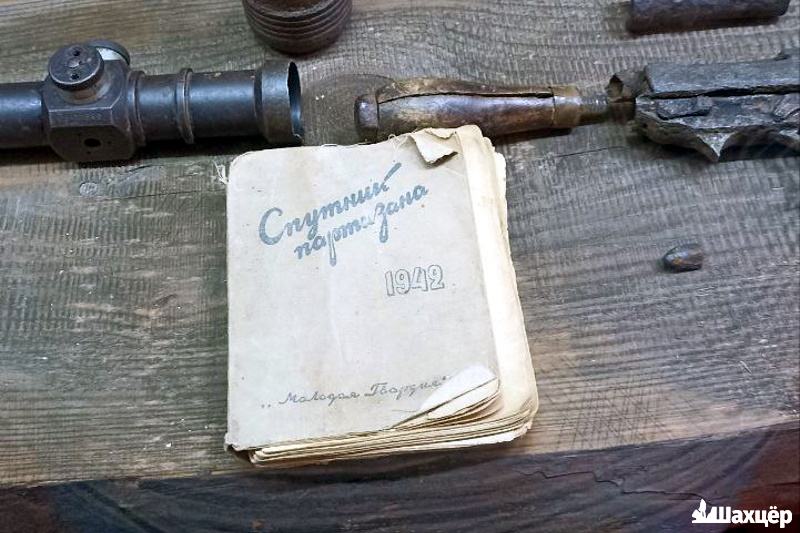 Спутник
партизана
1942
„Молодая Гвардия"
Шахцёр